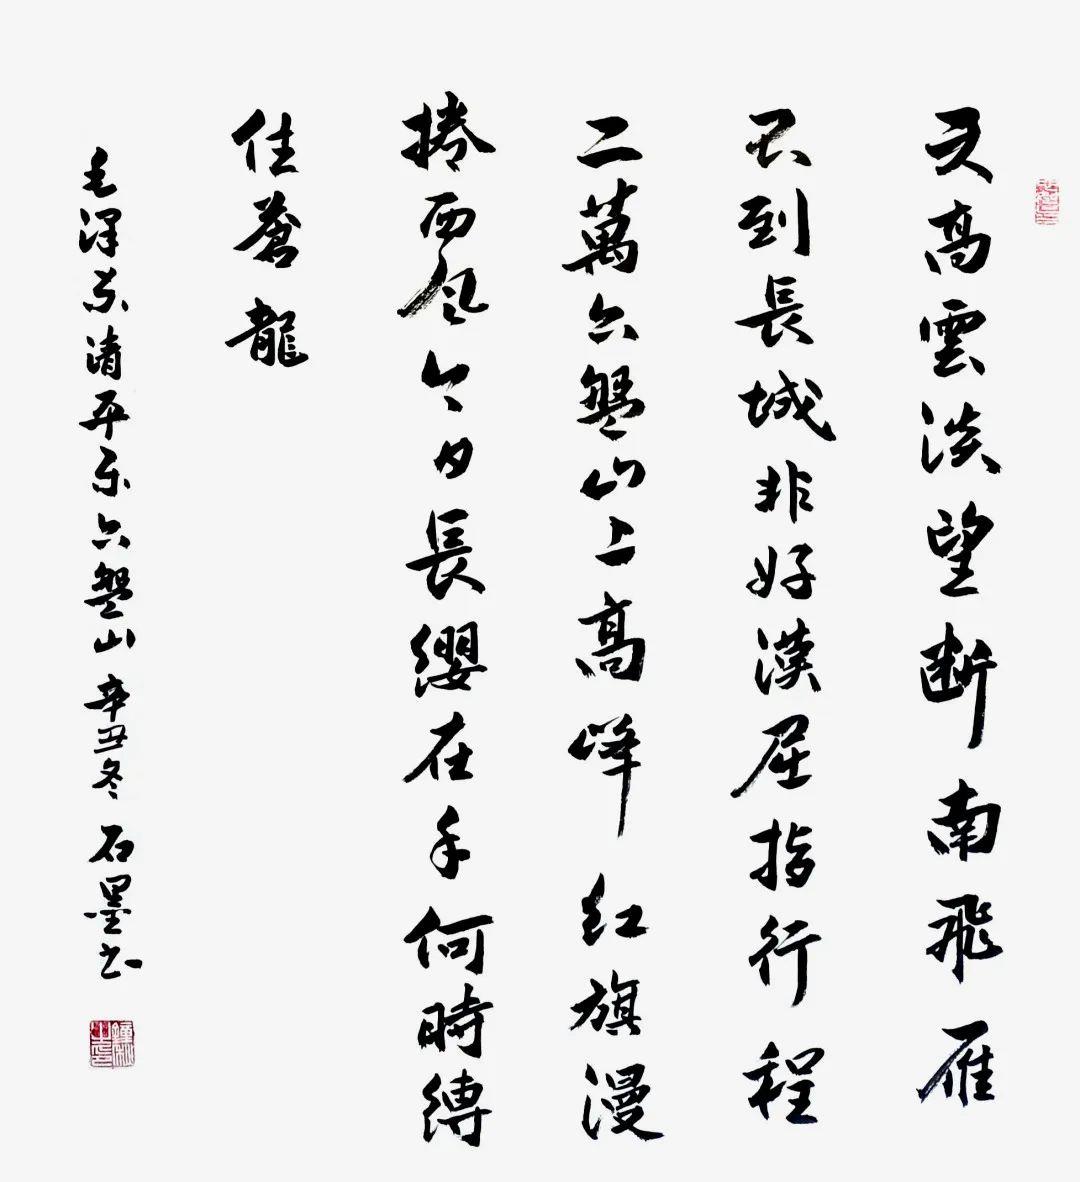 天高雲淡望断南飛雁
不到長城非好漢屈指行程
二萬六盤山上高峰红旗漫
捲西风今日長纓在手何時縛
住蒼龍
毛泽东清平乐六盤山辛丑冬石墨书